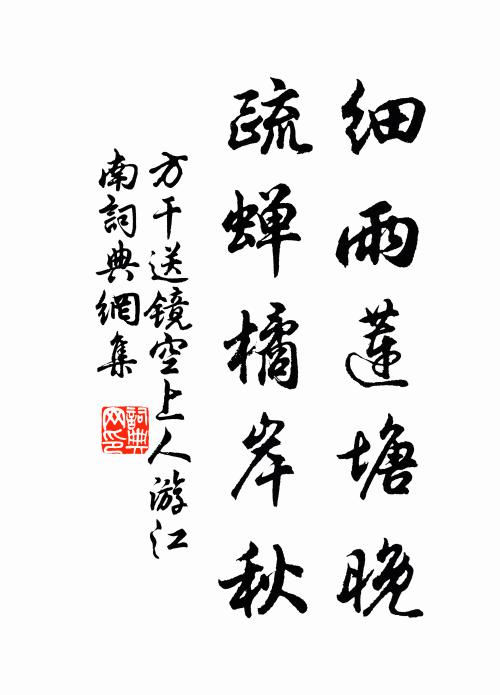 细雨莲塘晚
疏蝉橘岸秋
方干送镜空上人游江
南詞典網集
詞典
网印